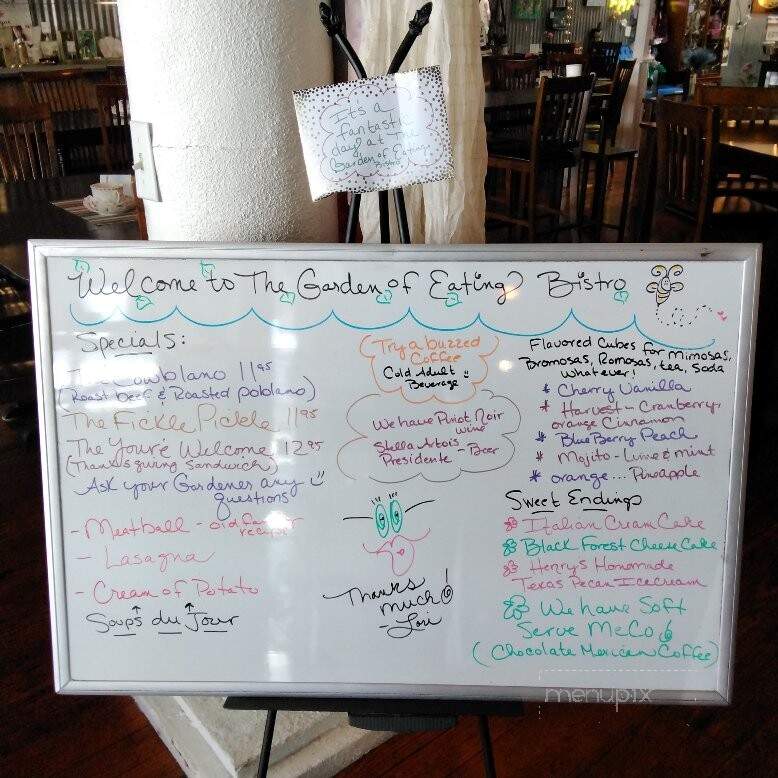 It's a
fantastic
day at The
Garden of Eating
Bistro
Welcome to The Garden of Eating Bistro
Specials:
The Cowblano 11.95
(Roast beef & Roasted poblano)
The Fickle Pickle 11.95
The You're Welcome 12.95
(Thanksgiving Sandwich)
Ask your Gardeners any
questions
- Meatball - old family
recipe
- Lasagna
- Cream of Potato
Soups du Jour
Try a buzzed
Coffee
Cold Adult
Beverage
We have Pinot Noir
wine
Stella Artois
Presidente - Beer
Thanks
much!
- Lori
Flavored Cubes for Mimosas,
Bromosas, Romosas, tea, Soda
whatever!
* Cherry Vanilla
* Harvest - Cranberry,
orange Cinnamon
* BlueBerry Peach
* Mojito - Lime & mint
* orange ... Pineapple
Sweet Endings
Italian Cream Cake
Black Forest Cheese Cake
Henry's Homemade
Texas Pecan Icecream
We have Soft
Serve MeCo
(Chocolate Mexican Coffee)
menupix